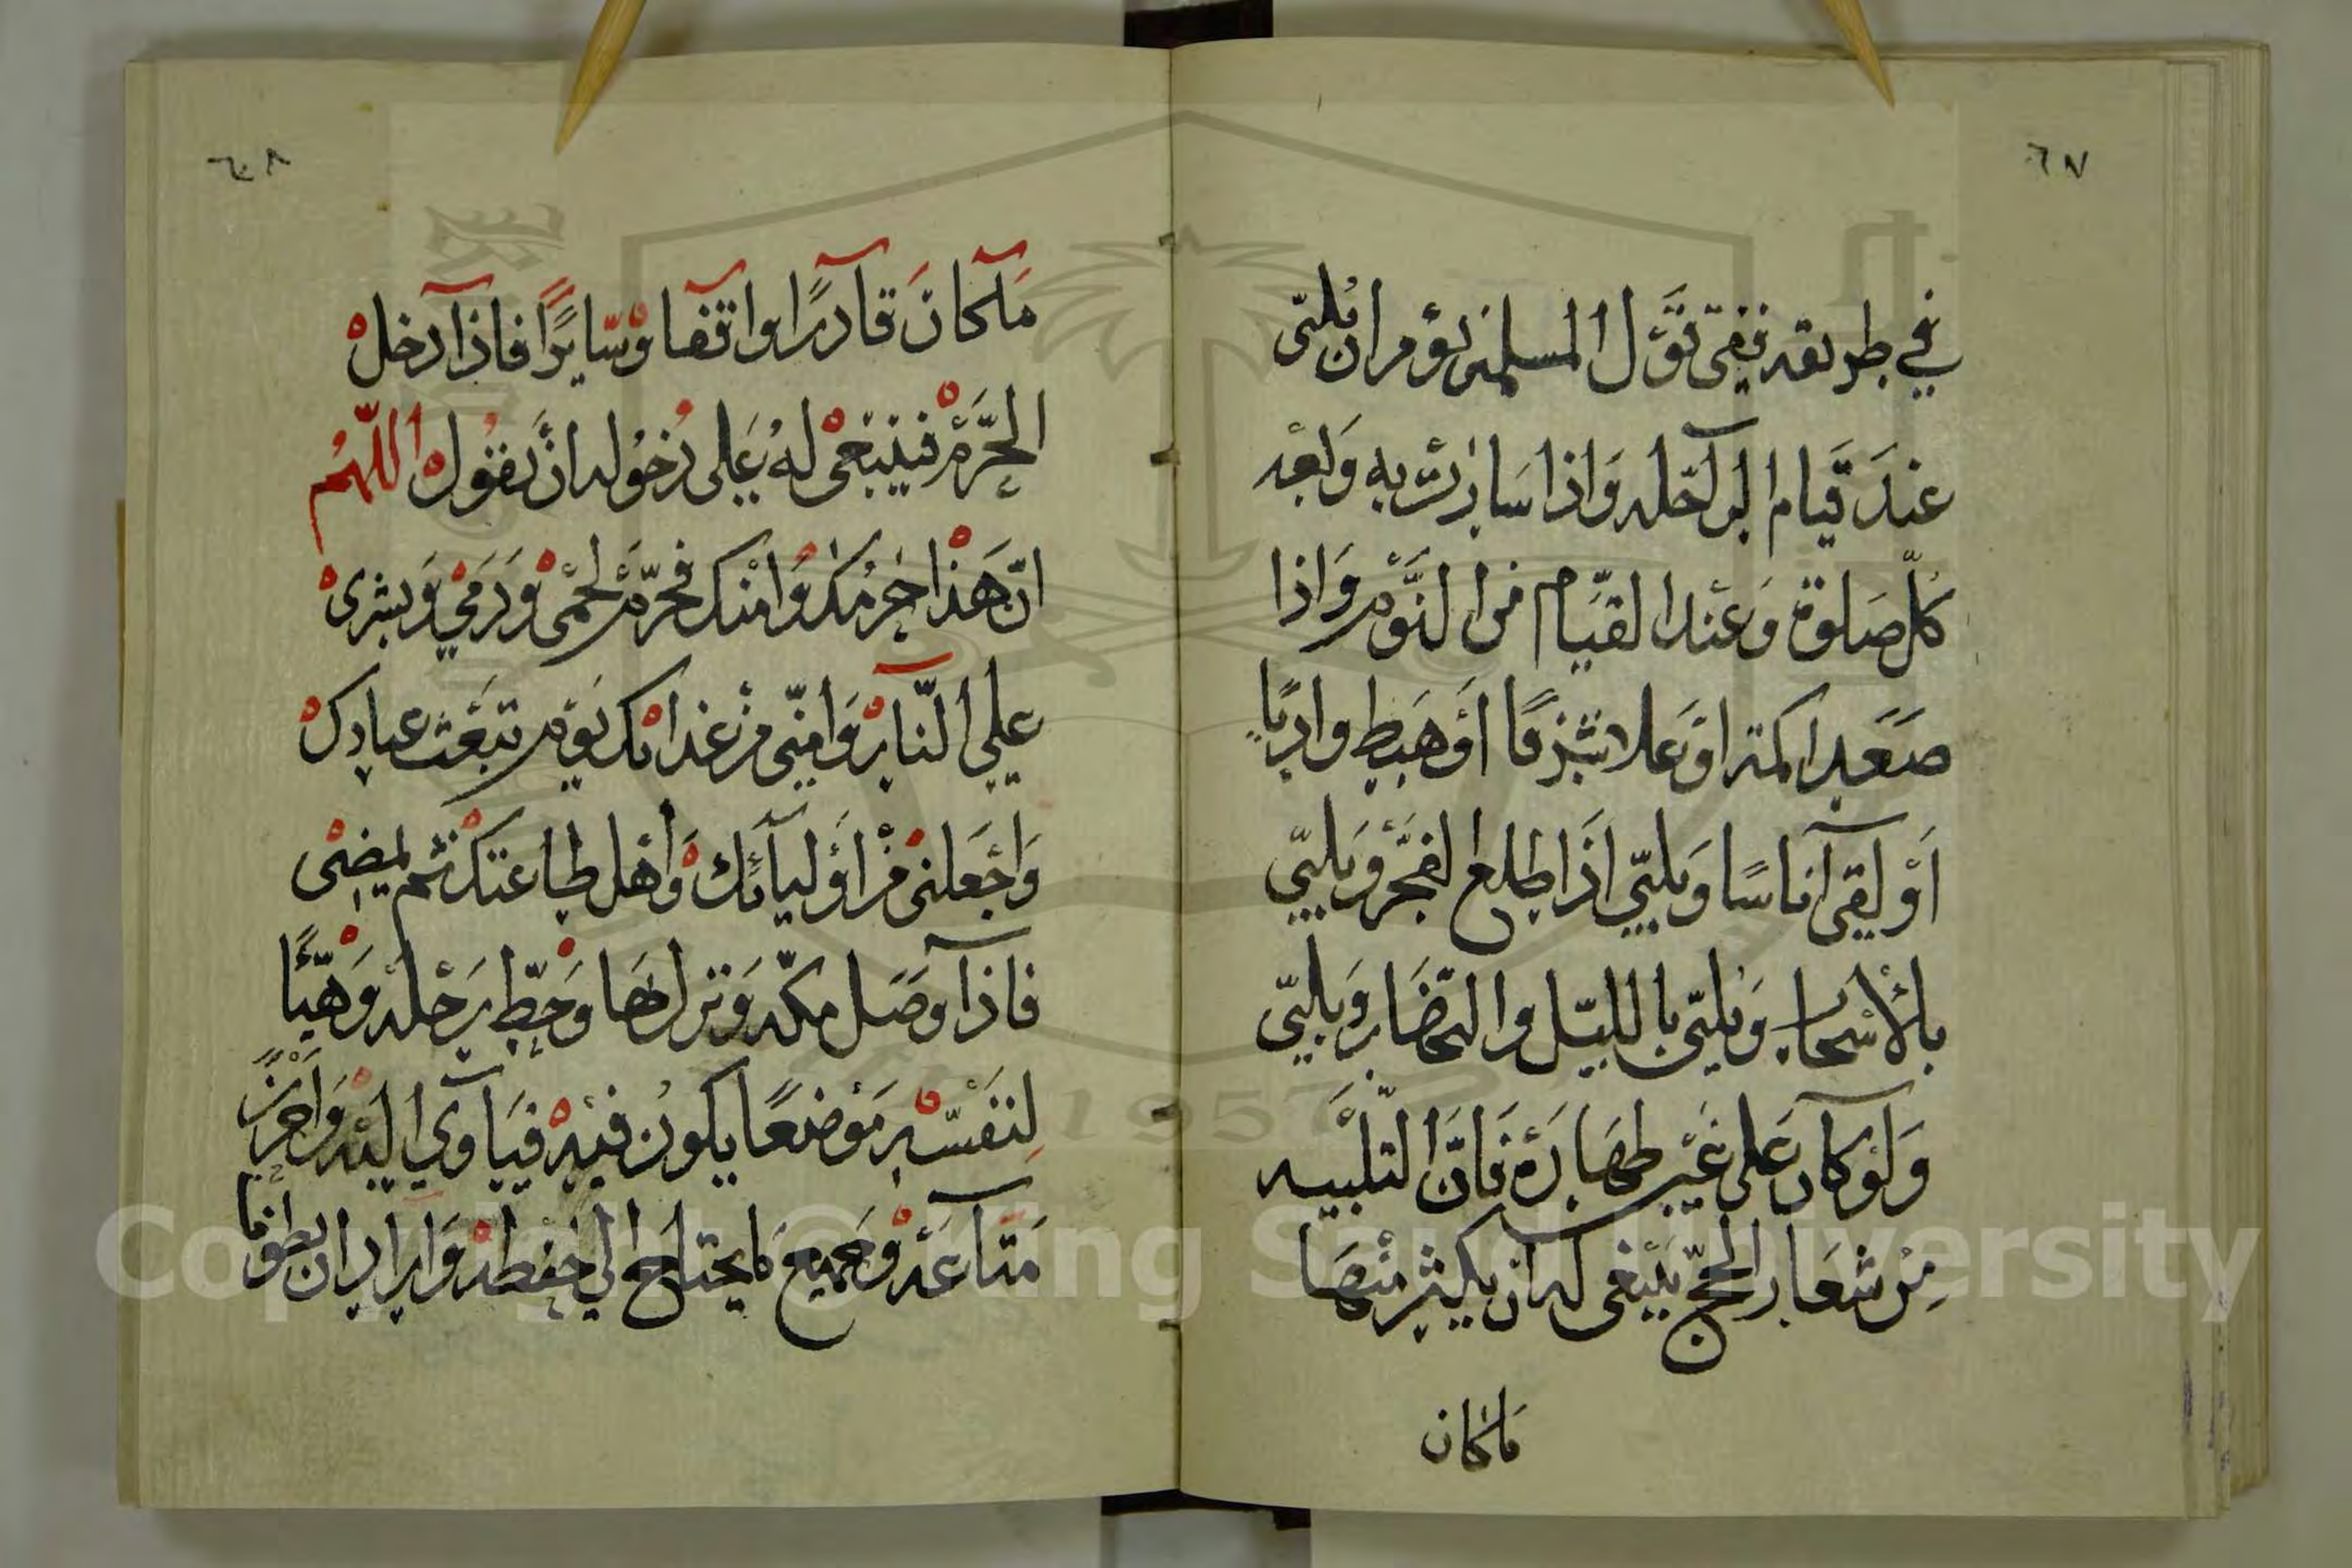 ٦٧
في طريقه ففي قول المسلمين يؤمر ان يلبّى
عِندَ قيام الرآحله وَاذا سَارت به وَبَعْد
كلّ صَلوة وَعِند القيَام من النَّوم وَاذا
صَعَد اكمة اوْعَلا شرفًا أوْهَبط واديًا
أوْ لقى آناسًا وَيلبّي اذَا طلع الفجْر وَيلبّي
بالأسْحار وَيلبّى بالليّل والنّهَار وَيلبّي
وَلوْكان عَلى غيْر طهَارَة فَانّ التلبيه
مِنْ شعَار الحجّ يَنبغى له ان يكثر منْهَا
ماكان
٦٨
مَآكانَ قآدرًا وآقفا وْسّايرًا فاذآ دخل
الحَرَمْ فينبَغى لهُ عَلى دُخوله انْ يقوُل اللهُم
انّ هَذا حرمُكَ وَامْنك فحَرّمْ لحْمى وَدَمي وَبشرى
علي النّارْ وَامنّى منْ عذابْك يَوْم تبْعَث عبادك
وَاجْعَلنى منْ أوْليآئك وَأهْل طاعَتك ثم يمضى
فاذآ وصَل مكّه وَنزل بهَا وَحَطّ رَحْله وَهَيّأ
لِنفسْه مَوْضعًا يكون فيْه فيَآوي اليْه وَآحْرَز
مَتآعَهْ وَجَميعَ مايحتاج الي حفظهْ وَاراد ان يطوف
Copyright © King Saud University
1957